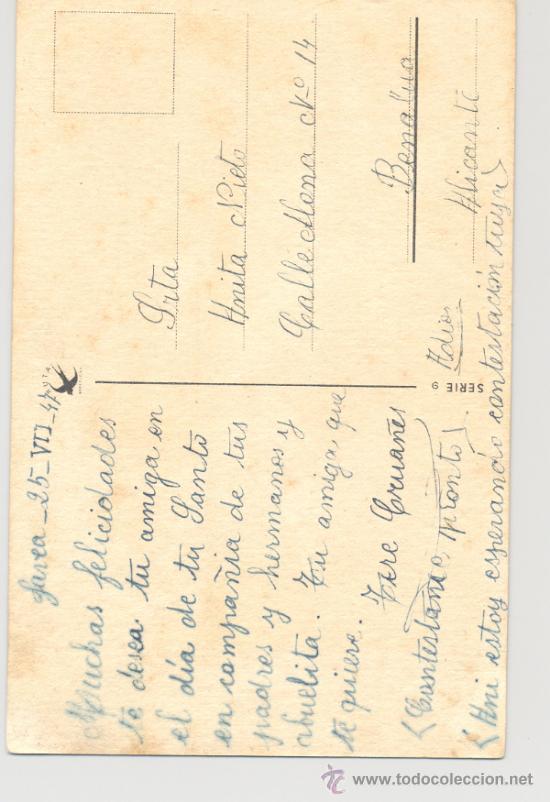 Javea - 25 - VII - 47
Muchas felicidades
te desea tu amiga en
el día de tu Santo
en compañia de tus
padres y hermanos y
abuelita. Tu amiga que
te quiere. Tere Cruañes
(Contestame, pronto)
(Ani estoy esperando contestación tuya)
Adios
Srta
Anita Nieto
Calle Mona Nº 14
Benalua
Alicante
SERIE 9
www.todocoleccion.net